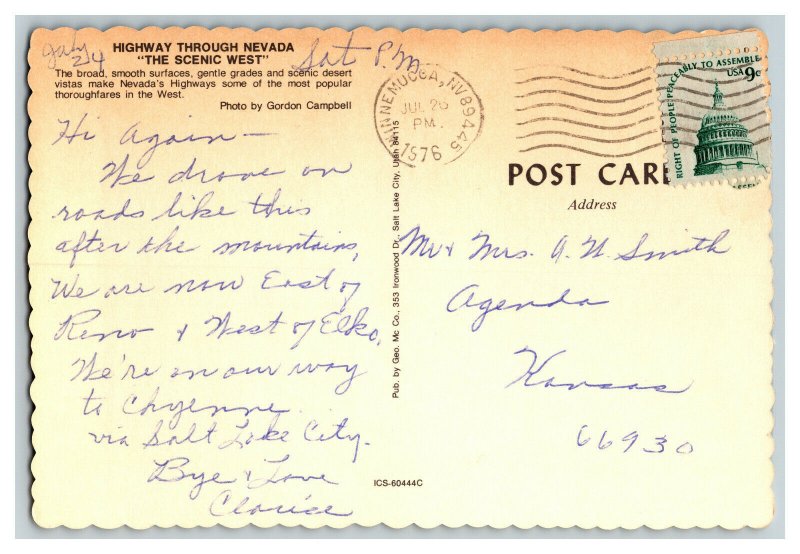 July
24
Sat P.M.
HIGHWAY THROUGH NEVADA
"THE SCENIC WEST"
The broad, smooth surfaces, gentle grades and scenic desert
vistas make Nevada's Highways some of the most popular
thoroughfares in the West.
Photo by Gordon Campbell
Hi Again —
We drove on
roads like this
after the mountains,
We are now East of
Reno & West of Elko,
We're on our way
to Chyenne
via Salt Lake City.
Bye & Love
Clarice
Pub. by Geo. Mc Co., 353 Ironwood Dr. Salt Lake City, Utah 84115
ICS-60444C
WINNEMUCCA, NV 89445
JUL 26
PM
1976
RIGHT OF PEOPLE PEACEABLY TO ASSEMBLE
USA 9c
POST CARD
Address
Mr & Mrs. A. W. Smith
Agenda
Kansas
66930